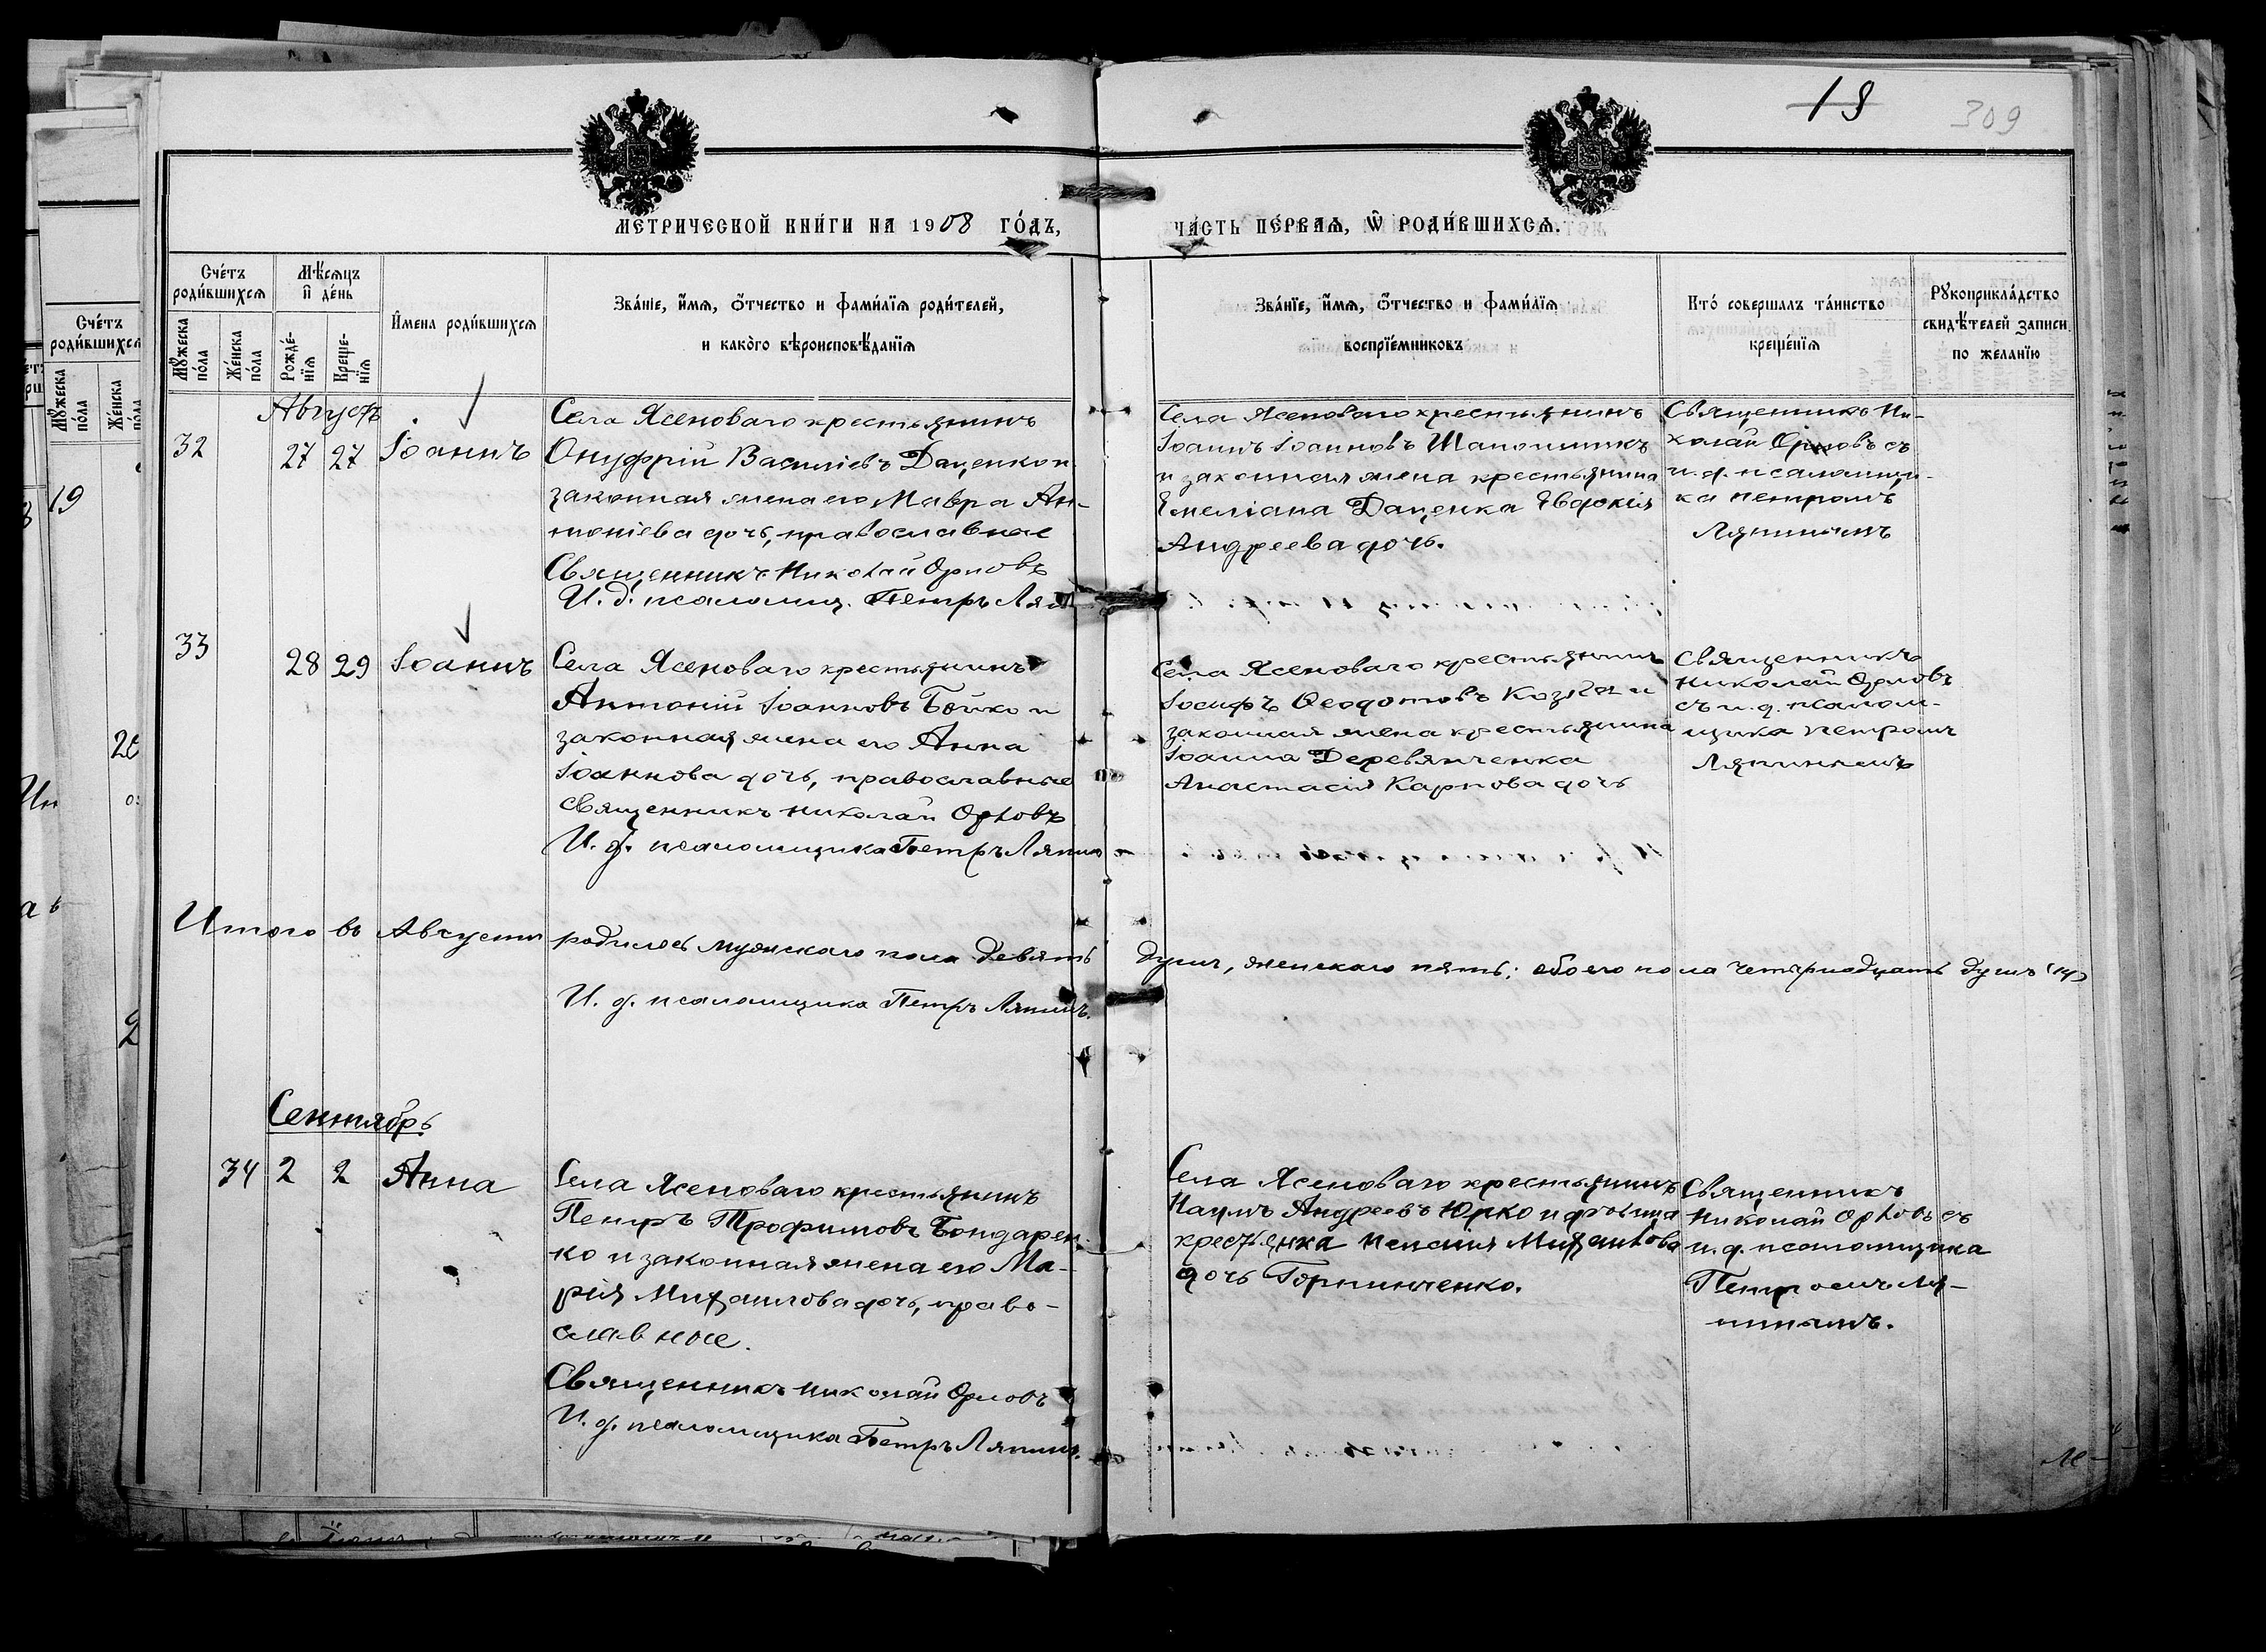 18
309
МЕТРИЧЕСКОЙ КНИ́ГИ НА 1908 ГО́ДЪ,
ЧА́СТЬ ПЕ́РВАѦ, Ѿ РОДИ́ВШИХСѦ.
Сче́тъ
роди́вшихсѧ
Мꙋ́жеска
по́ла
Же́нска
по́ла
Мѣ́сѧцъ
и҆ де́нь
Рожде́-
нїѧ
Креще-
нїѧ
И҆мена роди́вшихсѧ
Зва́нїе, и҆́мѧ, ѻ҆́тчество и фами́лїѧ роди́телей,
и како́го вѣроисповѣ́данїѧ
Зва́нїе, и҆́мѧ, ѻ҆́тчество и фами́лїѧ
воспрїе́мниковъ
Кто́ соверша́лъ та́инство
креще́нїѧ
Рꙋкоприкла́дство
свидѣ́телей записи
по жела́нїю
Августъ
32
27 27
Іоаннъ
Села Ясеноваго крестьянинъ
Онуфрій Василіевъ Даценко и
законная жена его Мавра Ан-
тоніева дочь, православные
Священникъ Николай Орловъ
И. д. псаломщ. Петръ Ляп
Села Ясеноваго крестьянинъ
Іоаннъ Іоанновъ Шапошникъ
и законная жена крестьянина
Емеліана Даценка Евдокія
Андреева дочь.
Священникъ Ни-
колай Орловъ съ
и. д. псаломщи-
ка Петромъ
Ляпинымъ
33
28 29
Іоаннъ
Села Ясеноваго крестьянинъ
Антоній Іоанновъ Бойко и
законная жена его Анна
Іоаннова дочь, православные
Священникъ Николай Орловъ
И. д. псаломщика Петръ Ляпин
Села Ясеноваго крестьянинъ
Іосифъ Ѳеодотовъ и
законная жена крестьянина
Іоанна Деревянченка
Анастасія Карпова дочь
Священникъ
Николай Орловъ
съ и. д. псалом-
щика Петромъ
Ляпинымъ
Итого въ Августѣ родилось мужскаго пола девять душъ, женскаго пять; обоего пола четырнадцать душъ
И. д. псаломщика Петръ Ляпинъ.
Сентябрь
34
2 2
Анна
Села Ясеноваго крестьянинъ
Петръ Трофимовъ Бондарен-
ко и законная жена его Ма-
рія Михаилова дочь, право-
славные.
Священникъ Николай Орловъ
И. д. псаломщика Петръ Ляпинъ.
Села Ясеноваго крестьянинъ
Наумъ Андреевъ Юрко и дѣвица
крестьянка Михаилова
дочь Горпинченко.
Священникъ
Николай Орловъ съ
и. д. псаломщика
Петромъ Ля-
пинымъ.